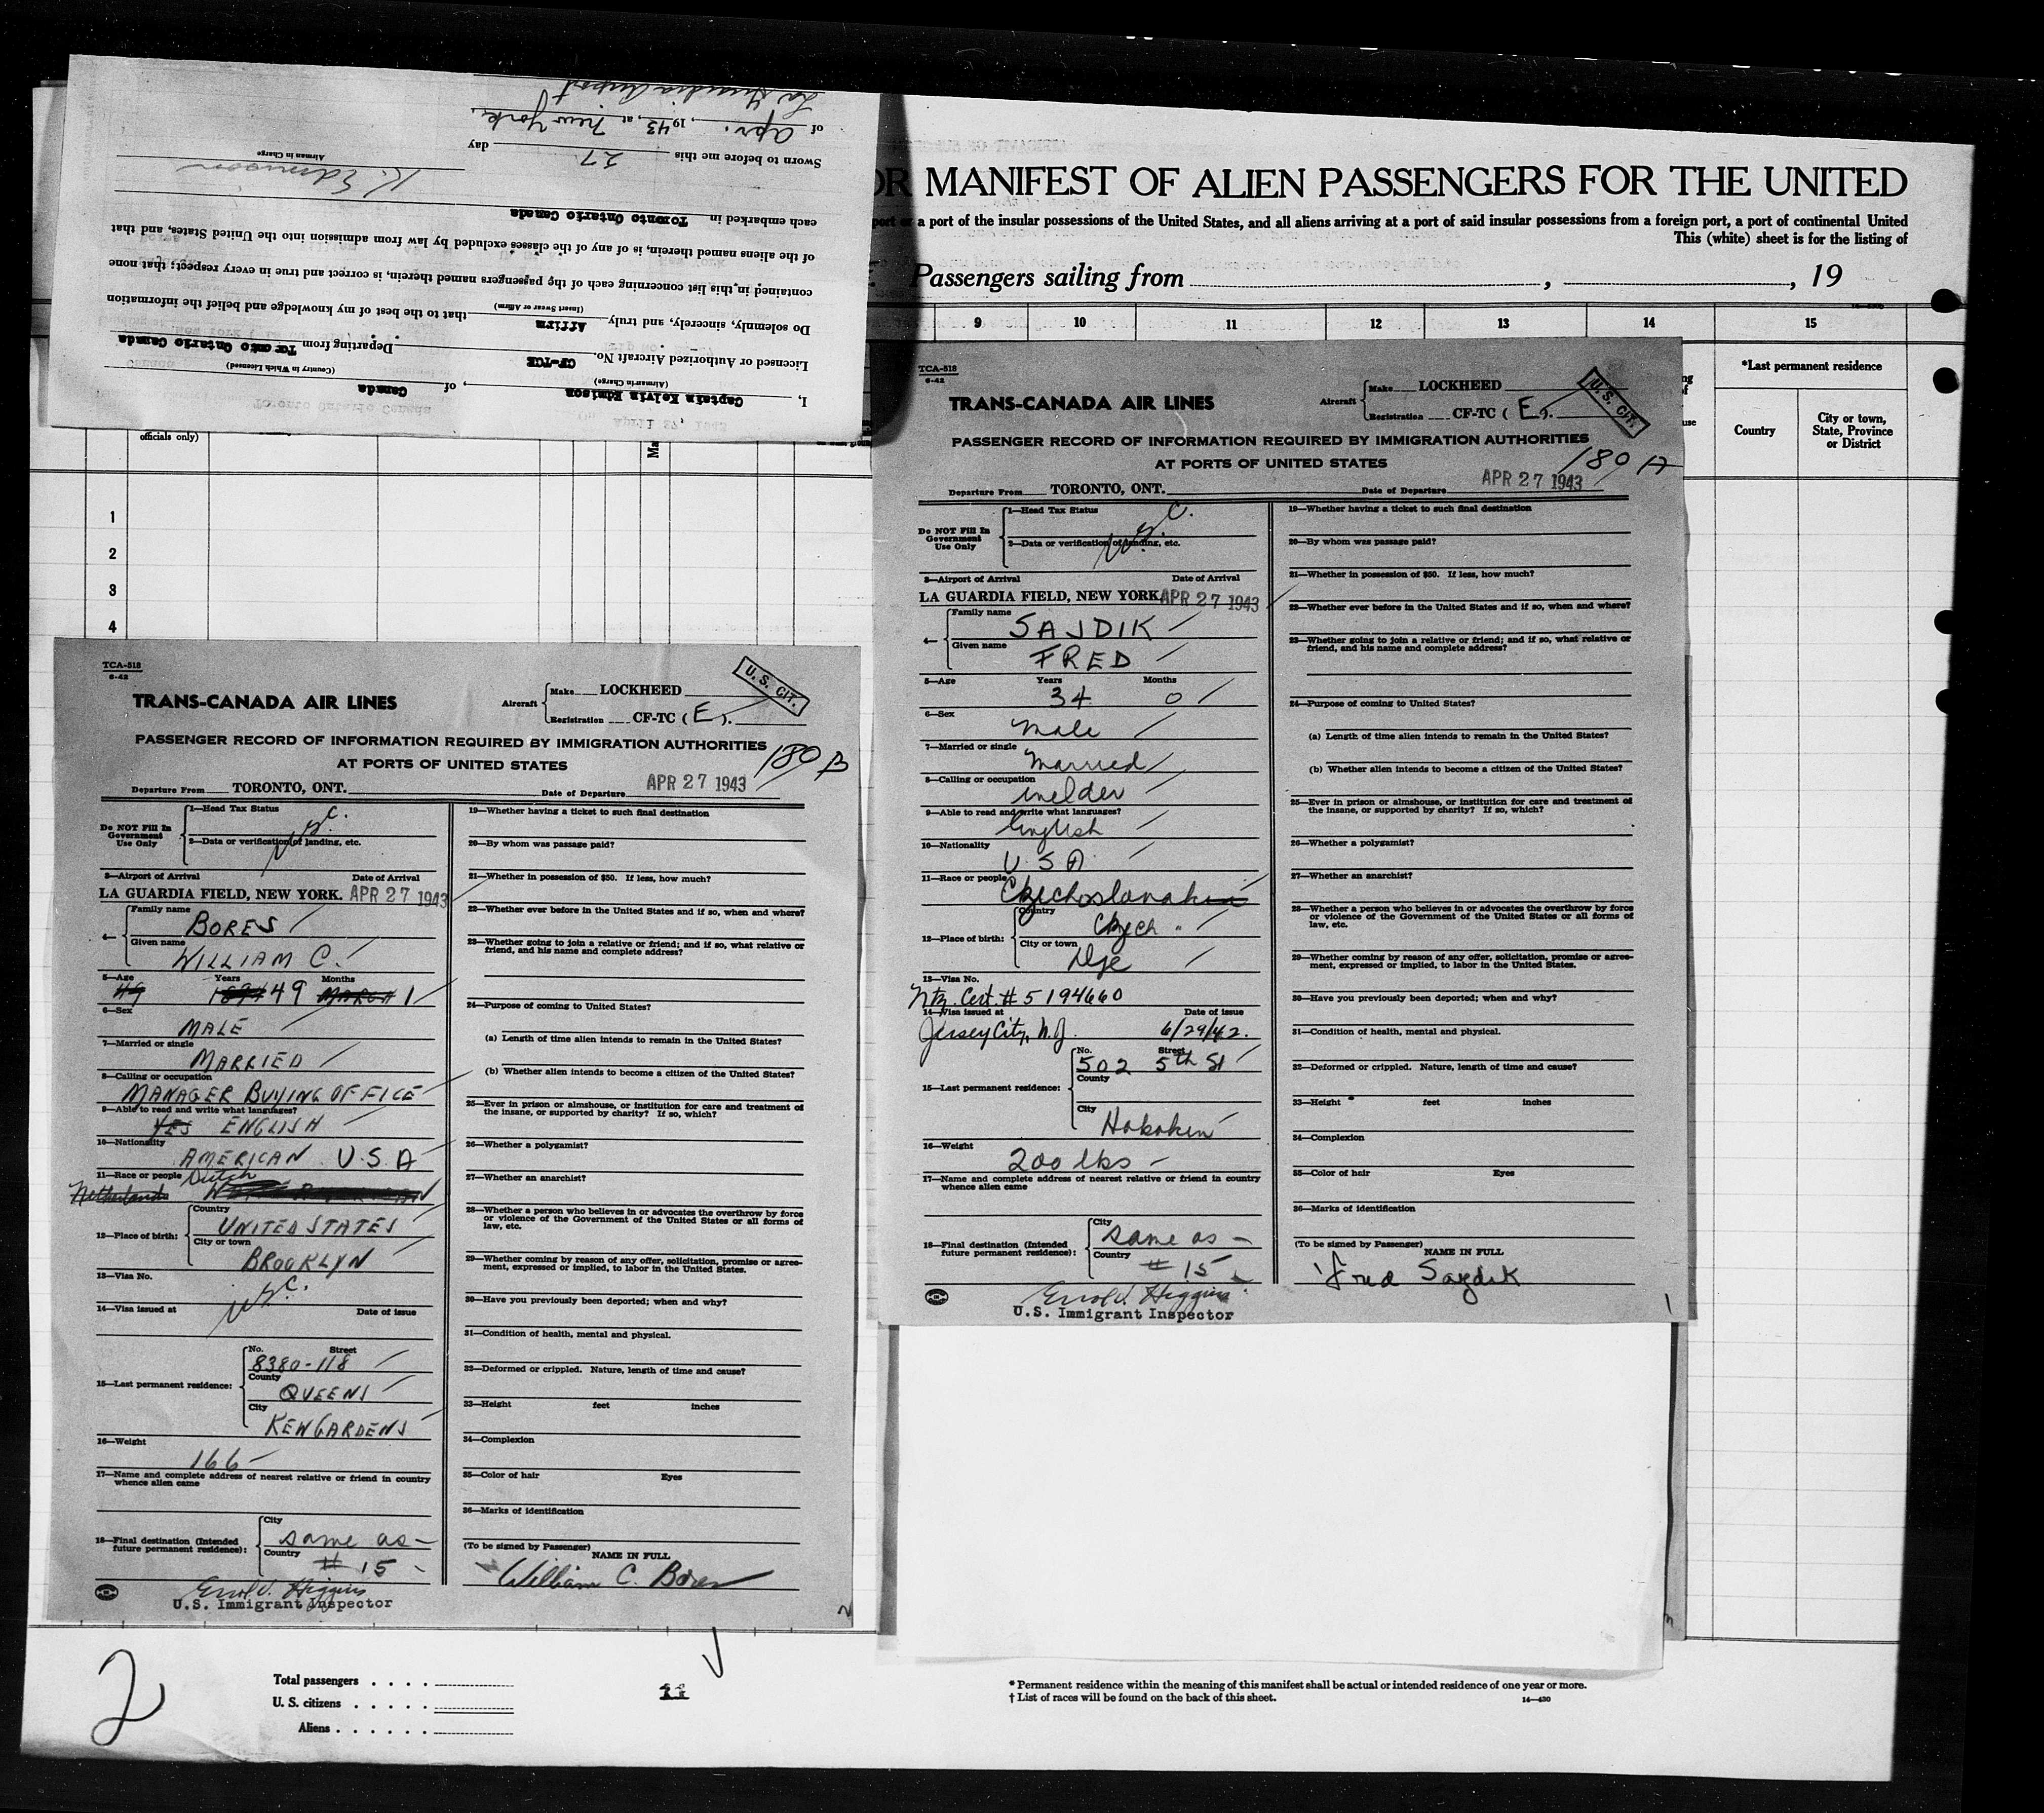 I, Captain Kelvin Edmison, of Canada
(Airman in Charge) (Country in Which Licensed)
Licensed or Authorized Aircraft No. CF-TCE Departing from Toronto Ontario Canada
Do solemnly, sincerely, and truly Affirm that to the best of my knowledge and belief the information
(Insert Swear or Affirm)
contained in this list concerning each of the passengers named therein, is correct and true in every respect; that none
of the aliens named therein, is of any of the classes excluded by law from admission into the United States, and that
each embarked in Toronto Ontario Canada
K. Edmison
Airman in Charge
Sworn to before me this 27 day
of Apr., 1943, at New York,
La Guardia Airport
OR MANIFEST OF ALIEN PASSENGERS FOR THE UNITED
port or a port of the insular possessions of the United States, and all aliens arriving at a port of said insular possessions from a foreign port, a port of continental United
This (white) sheet is for the listing of
Passengers sailing from , , 19
9 10 11 12 13 14 15
*Last permanent residence
Country
City or town, State, Province or District
officials only)
1
2
3
4
TCA-518
6-42
TRANS-CANADA AIR LINES
Aircraft
Make LOCKHEED
Registration CF-TC ( E ).
U. S. CIT.
PASSENGER RECORD OF INFORMATION REQUIRED BY IMMIGRATION AUTHORITIES
AT PORTS OF UNITED STATES
180 B
Departure From TORONTO, ONT. Date of Departure APR 27 1943
Do NOT Fill In Government Use Only
1—Head Tax Status
2—Data or verification of landing, etc.
3—Airport of Arrival Date of Arrival
LA GUARDIA FIELD, NEW YORK. APR 27 1943
4—
Family name
BORES
Given name
WILLIAM C.
5—Age Years Months
49 1894 49 MARCH 1
6—Sex
MALE
7—Married or single
MARRIED
8—Calling or occupation
MANAGER BUYING OFFICE
9—Able to read and write what languages?
YES ENGLISH
10—Nationality
AMERICAN U.S.A
11—Race or people Dutch
Netherlands
12—Place of birth:
Country
UNITED STATES
City or town
BROOKLYN
13—Visa No.
14—Visa issued at Date of issue
15—Last permanent residence:
No. Street
8380-118
County
QUEENS
City
KEW GARDENS
16—Weight
166
17—Name and complete address of nearest relative or friend in country whence alien came
18—Final destination (Intended future permanent residence):
City
same as
Country
# 15
Errol V. Higgins
U.S. Immigrant Inspector
19—Whether having a ticket to such final destination
20—By whom was passage paid?
21—Whether in possession of $50. If less, how much?
22—Whether ever before in the United States and if so, when and where?
23—Whether going to join a relative or friend; and if so, what relative or friend, and his name and complete address?
24—Purpose of coming to United States?
(a) Length of time alien intends to remain in the United States?
(b) Whether alien intends to become a citizen of the United States?
25—Ever in prison or almshouse, or institution for care and treatment of the insane, or supported by charity? If so, which?
26—Whether a polygamist?
27—Whether an anarchist?
28—Whether a person who believes in or advocates the overthrow by force or violence of the Government of the United States or all forms of law, etc.
29—Whether coming by reason of any offer, solicitation, promise or agreement, expressed or implied, to labor in the United States.
30—Have you previously been deported; when and why?
31—Condition of health, mental and physical.
32—Deformed or crippled. Nature, length of time and cause?
33—Height feet inches
34—Complexion
35—Color of hair Eyes
36—Marks of identification
(To be signed by Passenger)
NAME IN FULL
William C. Bores
TCA-518
6-42
TRANS-CANADA AIR LINES
Aircraft
Make LOCKHEED
Registration CF-TC ( E ).
U. S. CIT.
PASSENGER RECORD OF INFORMATION REQUIRED BY IMMIGRATION AUTHORITIES
AT PORTS OF UNITED STATES
180 A
Departure From TORONTO, ONT. Date of Departure APR 27 1943
Do NOT Fill In Government Use Only
1—Head Tax Status
2—Data or verification of landing, etc.
3—Airport of Arrival Date of Arrival
LA GUARDIA FIELD, NEW YORK. APR 27 1943
4—
Family name
SAJDIK
Given name
FRED
5—Age Years Months
34 0
6—Sex
Male
7—Married or single
Married
8—Calling or occupation
Welder
9—Able to read and write what languages?
English
10—Nationality
U S A
11—Race or people
Czechoslovakian
12—Place of birth:
Country
Czech "
City or town
13—Visa No.
Ntz. Cert. # 5194660
14—Visa issued at Date of issue
Jersey City, N.J. 6/29/42.
15—Last permanent residence:
No. Street
502 5th St
County
City
Hoboken
16—Weight
200 lbs
17—Name and complete address of nearest relative or friend in country whence alien came
18—Final destination (Intended future permanent residence):
City
same as
Country
# 15
Errol V. Higgins
U.S. Immigrant Inspector
19—Whether having a ticket to such final destination
20—By whom was passage paid?
21—Whether in possession of $50. If less, how much?
22—Whether ever before in the United States and if so, when and where?
23—Whether going to join a relative or friend; and if so, what relative or friend, and his name and complete address?
24—Purpose of coming to United States?
(a) Length of time alien intends to remain in the United States?
(b) Whether alien intends to become a citizen of the United States?
25—Ever in prison or almshouse, or institution for care and treatment of the insane, or supported by charity? If so, which?
26—Whether a polygamist?
27—Whether an anarchist?
28—Whether a person who believes in or advocates the overthrow by force or violence of the Government of the United States or all forms of law, etc.
29—Whether coming by reason of any offer, solicitation, promise or agreement, expressed or implied, to labor in the United States.
30—Have you previously been deported; when and why?
31—Condition of health, mental and physical.
32—Deformed or crippled. Nature, length of time and cause?
33—Height feet inches
34—Complexion
35—Color of hair Eyes
36—Marks of identification
(To be signed by Passenger)
NAME IN FULL
Fred Sajdik
2
Total passengers
U. S. citizens
Aliens
11
* Permanent residence within the meaning of this manifest shall be actual or intended residence of one year or more.
† List of races will be found on the back of this sheet.
14—430